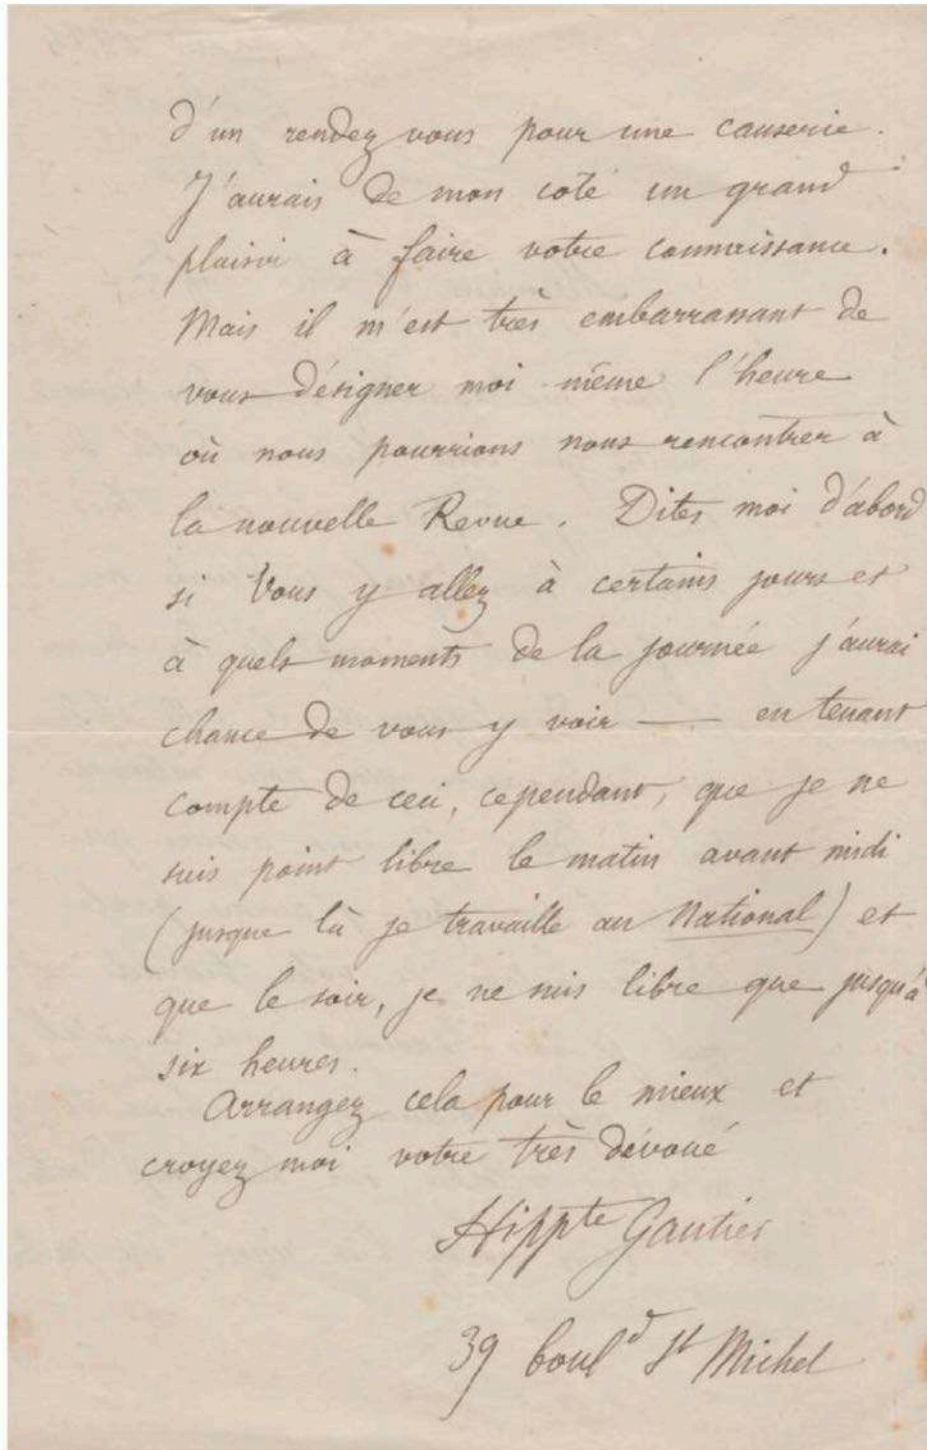 d'un rendez vous pour une causerie.
J'aurais de mon coté un grand
plaisir à faire votre connaissance.
Mais il m'est très embarrassant de
vous désigner moi même l'heure
où nous pourrions nous rencontrer à
la nouvelle Revue. Dites moi d'abord
si Vous y allez à certains jours et
à quels moments de la journée j'aurai
chance de vous y voir — en tenant
compte de ceci, cependant, que je ne
suis point libre le matin avant midi
(jusque là je travaille au National) et
que le soir, je ne suis libre que jusqu'à
six heures.
Arrangez cela pour le mieux et
croyez moi votre très dévoué
Hippte Gautier
39 bould St Michel